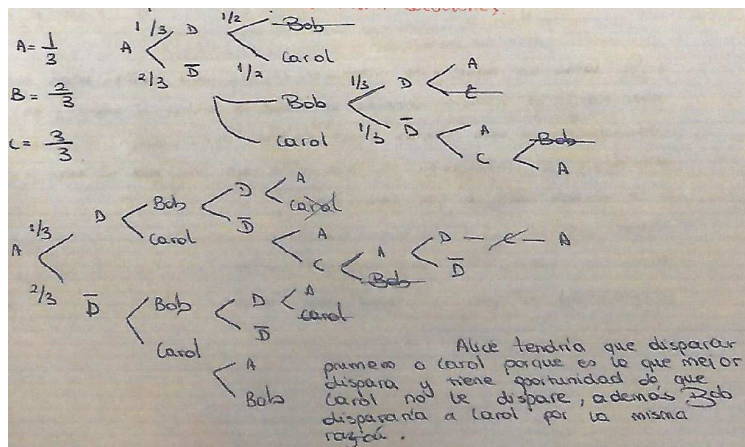 soluciones.
A = 1/3
B = 2/3
C = 3/3
A 1/3 D 1/2 Bob
1/2 Carol
2/3 D̅
Bob 1/3 D A
C
1/3 D̅ A
C Bob
A
Carol
A 1/3 D Bob D A
Carol
D̅ A
C A D - C - A
D̅
Bob
Carol
2/3 D̅ Bob D A
Carol
D̅
Carol A
Bob
Alice tendría que disparar
primero a Carol porque es la que mejor
dispara y tiene oportunidad de que
Carol no le dispare, además Bob
dispararía a Carol por la misma
razón.